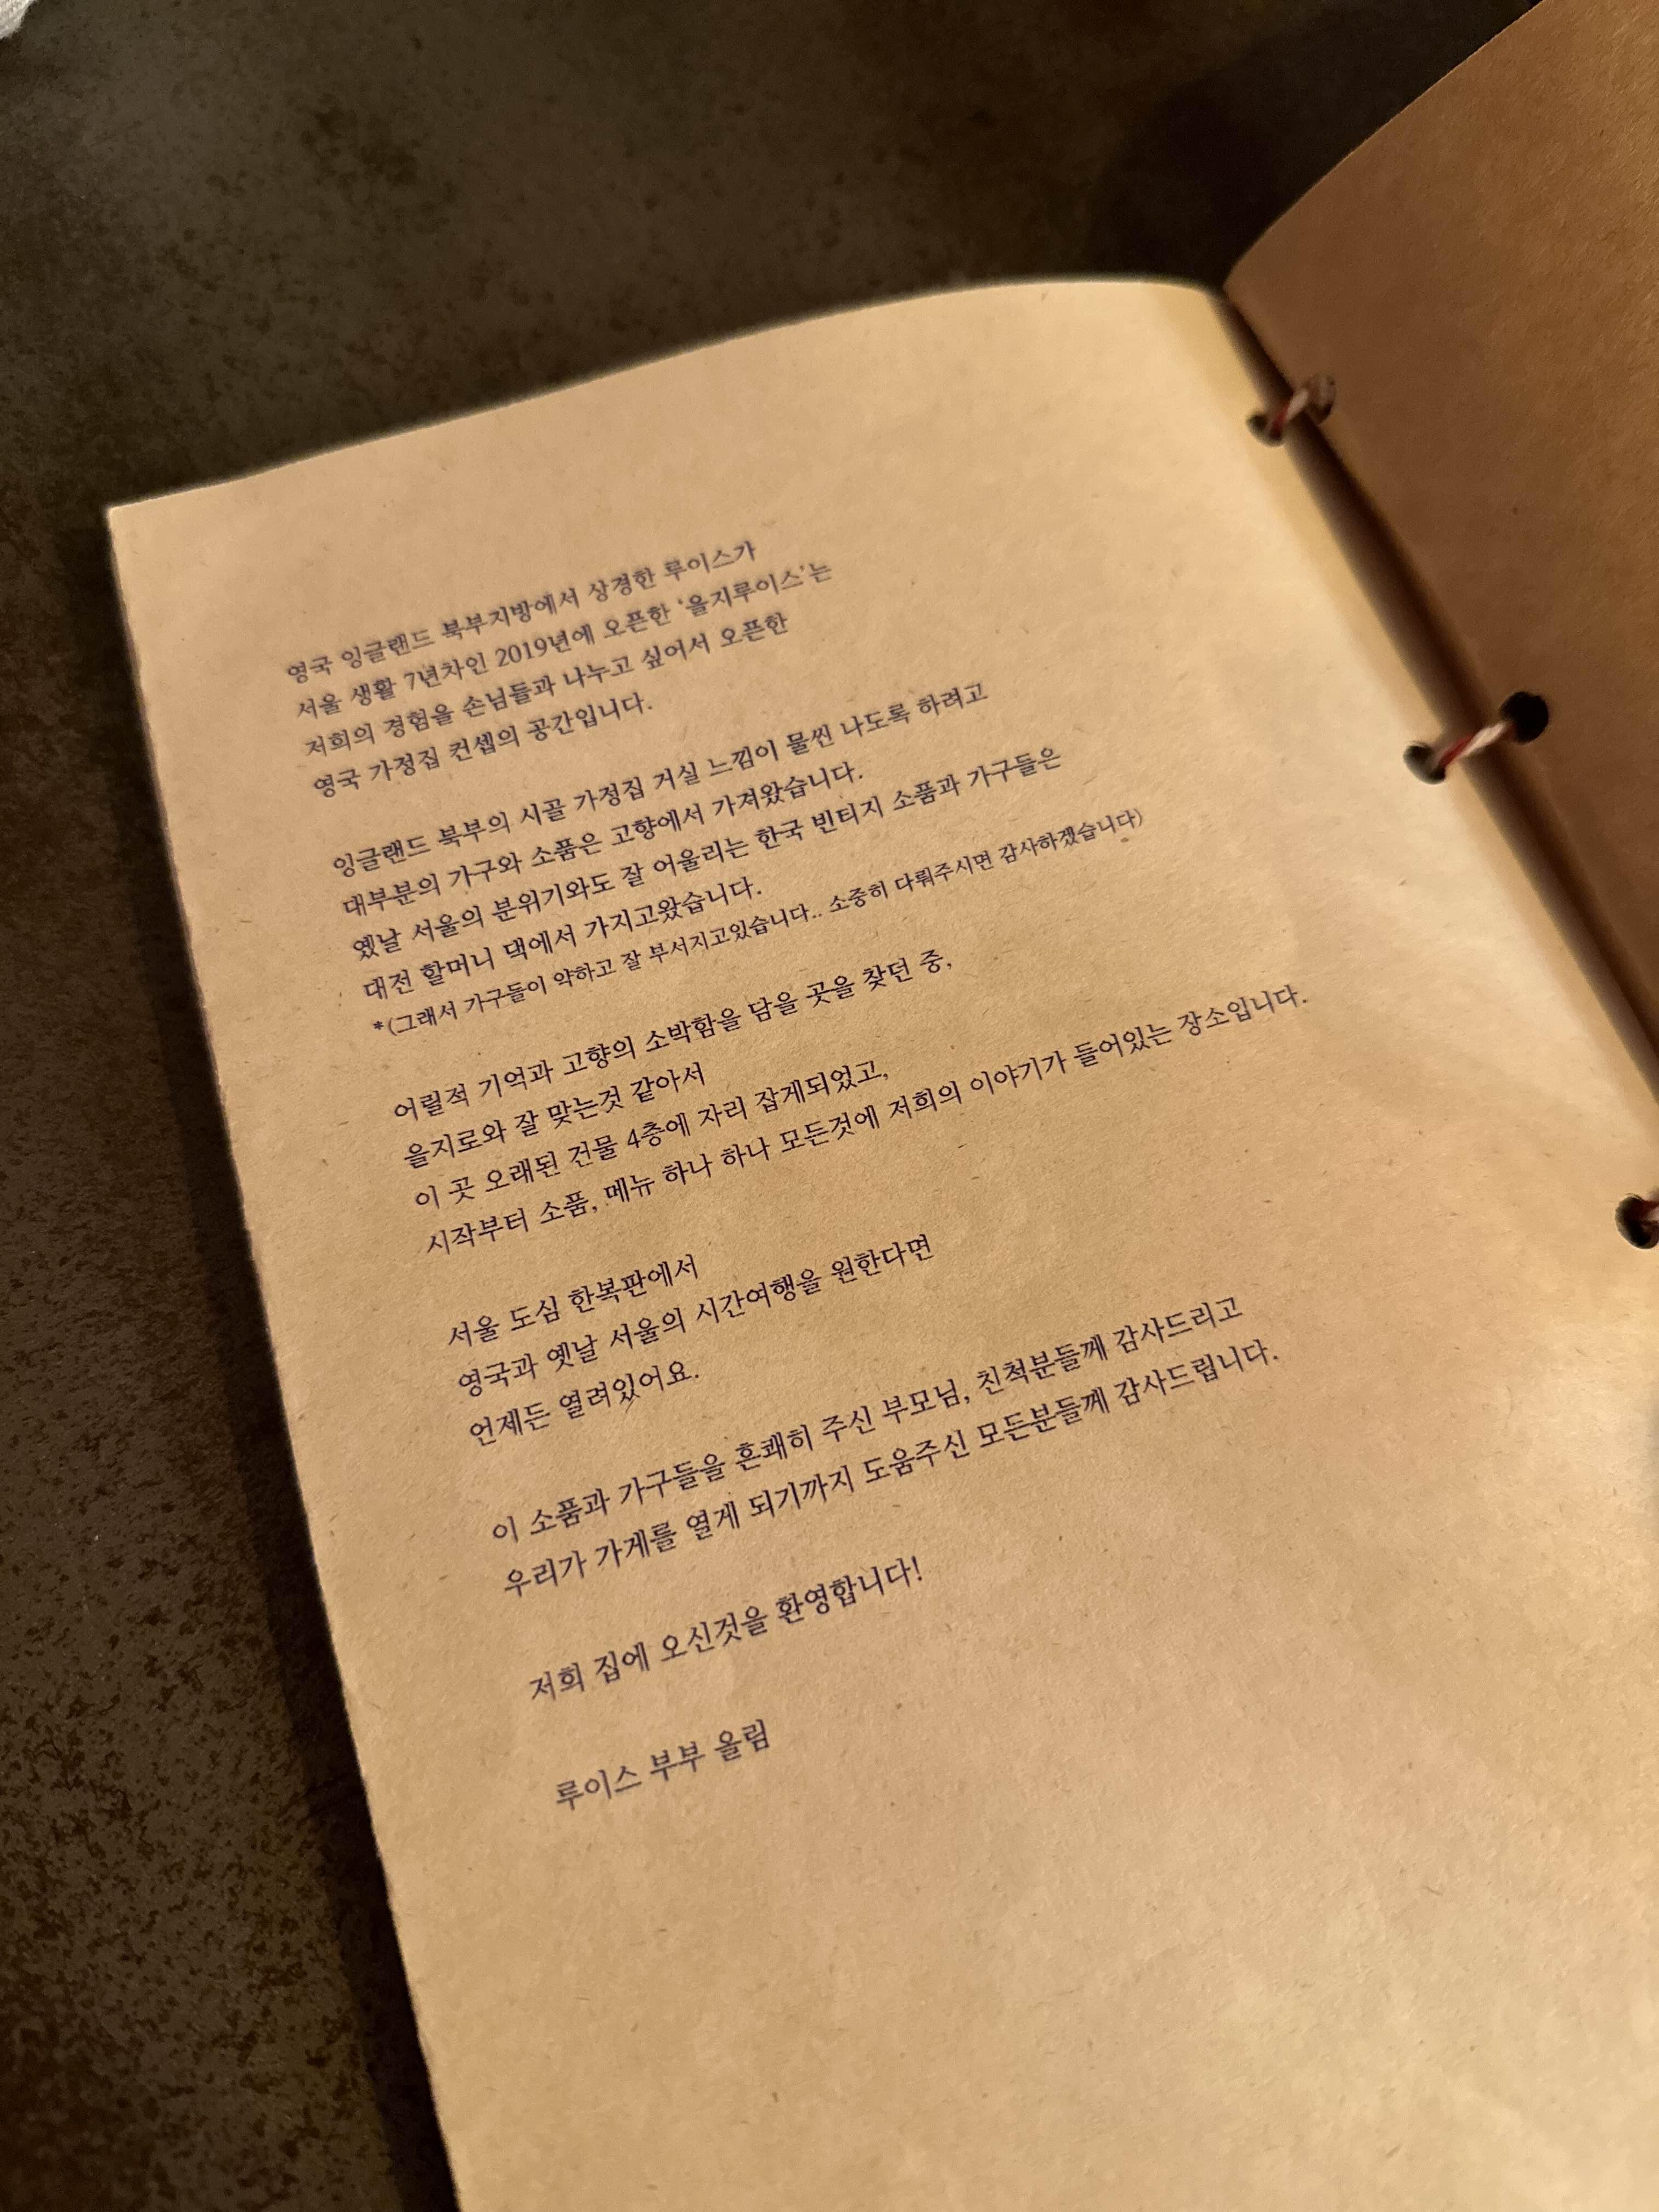 영국 잉글랜드 북부지방에서 상경한 루이스가
서울 생활 7년차인 2019년에 오픈한 '을지루이스'는
저희의 경험을 손님들과 나누고 싶어서 오픈한
영국 가정집 컨셉의 공간입니다.
잉글랜드 북부의 시골 가정집 거실 느낌이 물씬 나도록 하려고
대부분의 가구와 소품은 고향에서 가져왔습니다.
옜날 서울의 분위기와도 잘 어울리는 한국 빈티지 소품과 가구들은
대전 할머니 댁에서 가지고왔습니다.
*(그래서 가구들이 약하고 잘 부서지고있습니다.. 소중히 다뤄주시면 감사하겠습니다)
어릴적 기억과 고향의 소박함을 담을 곳을 찾던 중,
을지로와 잘 맞는것 같아서
이 곳 오래된 건물 4층에 자리 잡게되었고,
시작부터 소품, 메뉴 하나 하나 모든것에 저희의 이야기가 들어있는 장소입니다.
서울 도심 한복판에서
영국과 옛날 서울의 시간여행을 원한다면
언제든 열려있어요.
이 소품과 가구들을 흔쾌히 주신 부모님, 친척분들께 감사드리고
우리가 가게를 열게 되기까지 도움주신 모든분들께 감사드립니다.
저희 집에 오신것을 환영합니다!
루이스 부부 올림